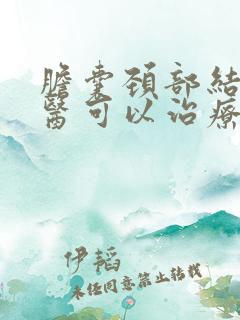 膽囊頚部結
醫可以治療
伊韜
未任同意禁止转载